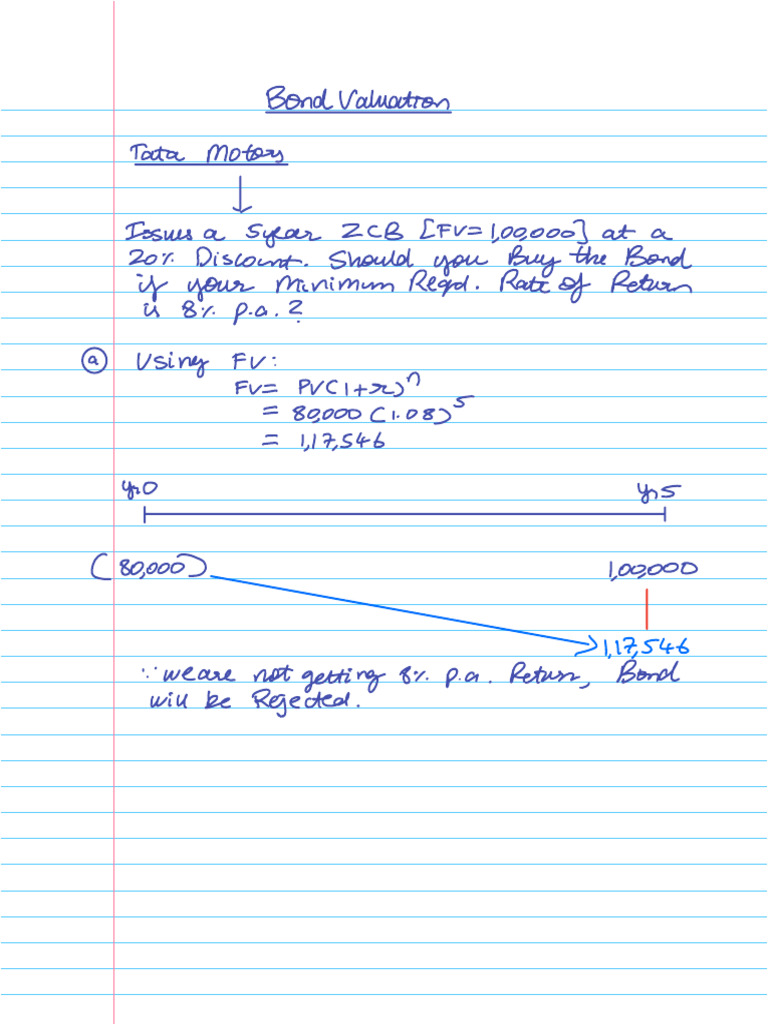 Bond Valuation
Tata Motors
Issues a 5year ZCB [FV=1,00,000] at a
20% Discount. Should you Buy the Bond
if your Minimum Reqd. Rate of Return
is 8% p.a.?
(a) Using FV:
FV= PV(1+r)ⁿ
= 80,000 (1.08)⁵
= 1,17,546
yr0 yr5
(80,000) 1,00,000
1,17,546
∵ we are not getting 8% p.a. Return, Bond
will be Rejected.